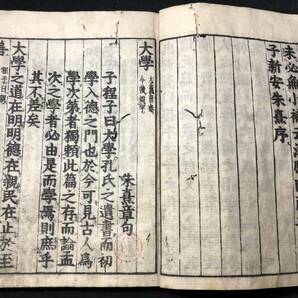 未必無小補
子新安朱熹序
大學 大舊音泰
今讀如字
朱熹章句
子程子曰大學孔氏之遺書而初
學入德之門也於今可見古人爲
學次第者獨賴此篇之存而論孟
次之學者必由是而學焉則庶乎
其不差矣
大學之道在明明德在親民在止於至
善 程子曰親